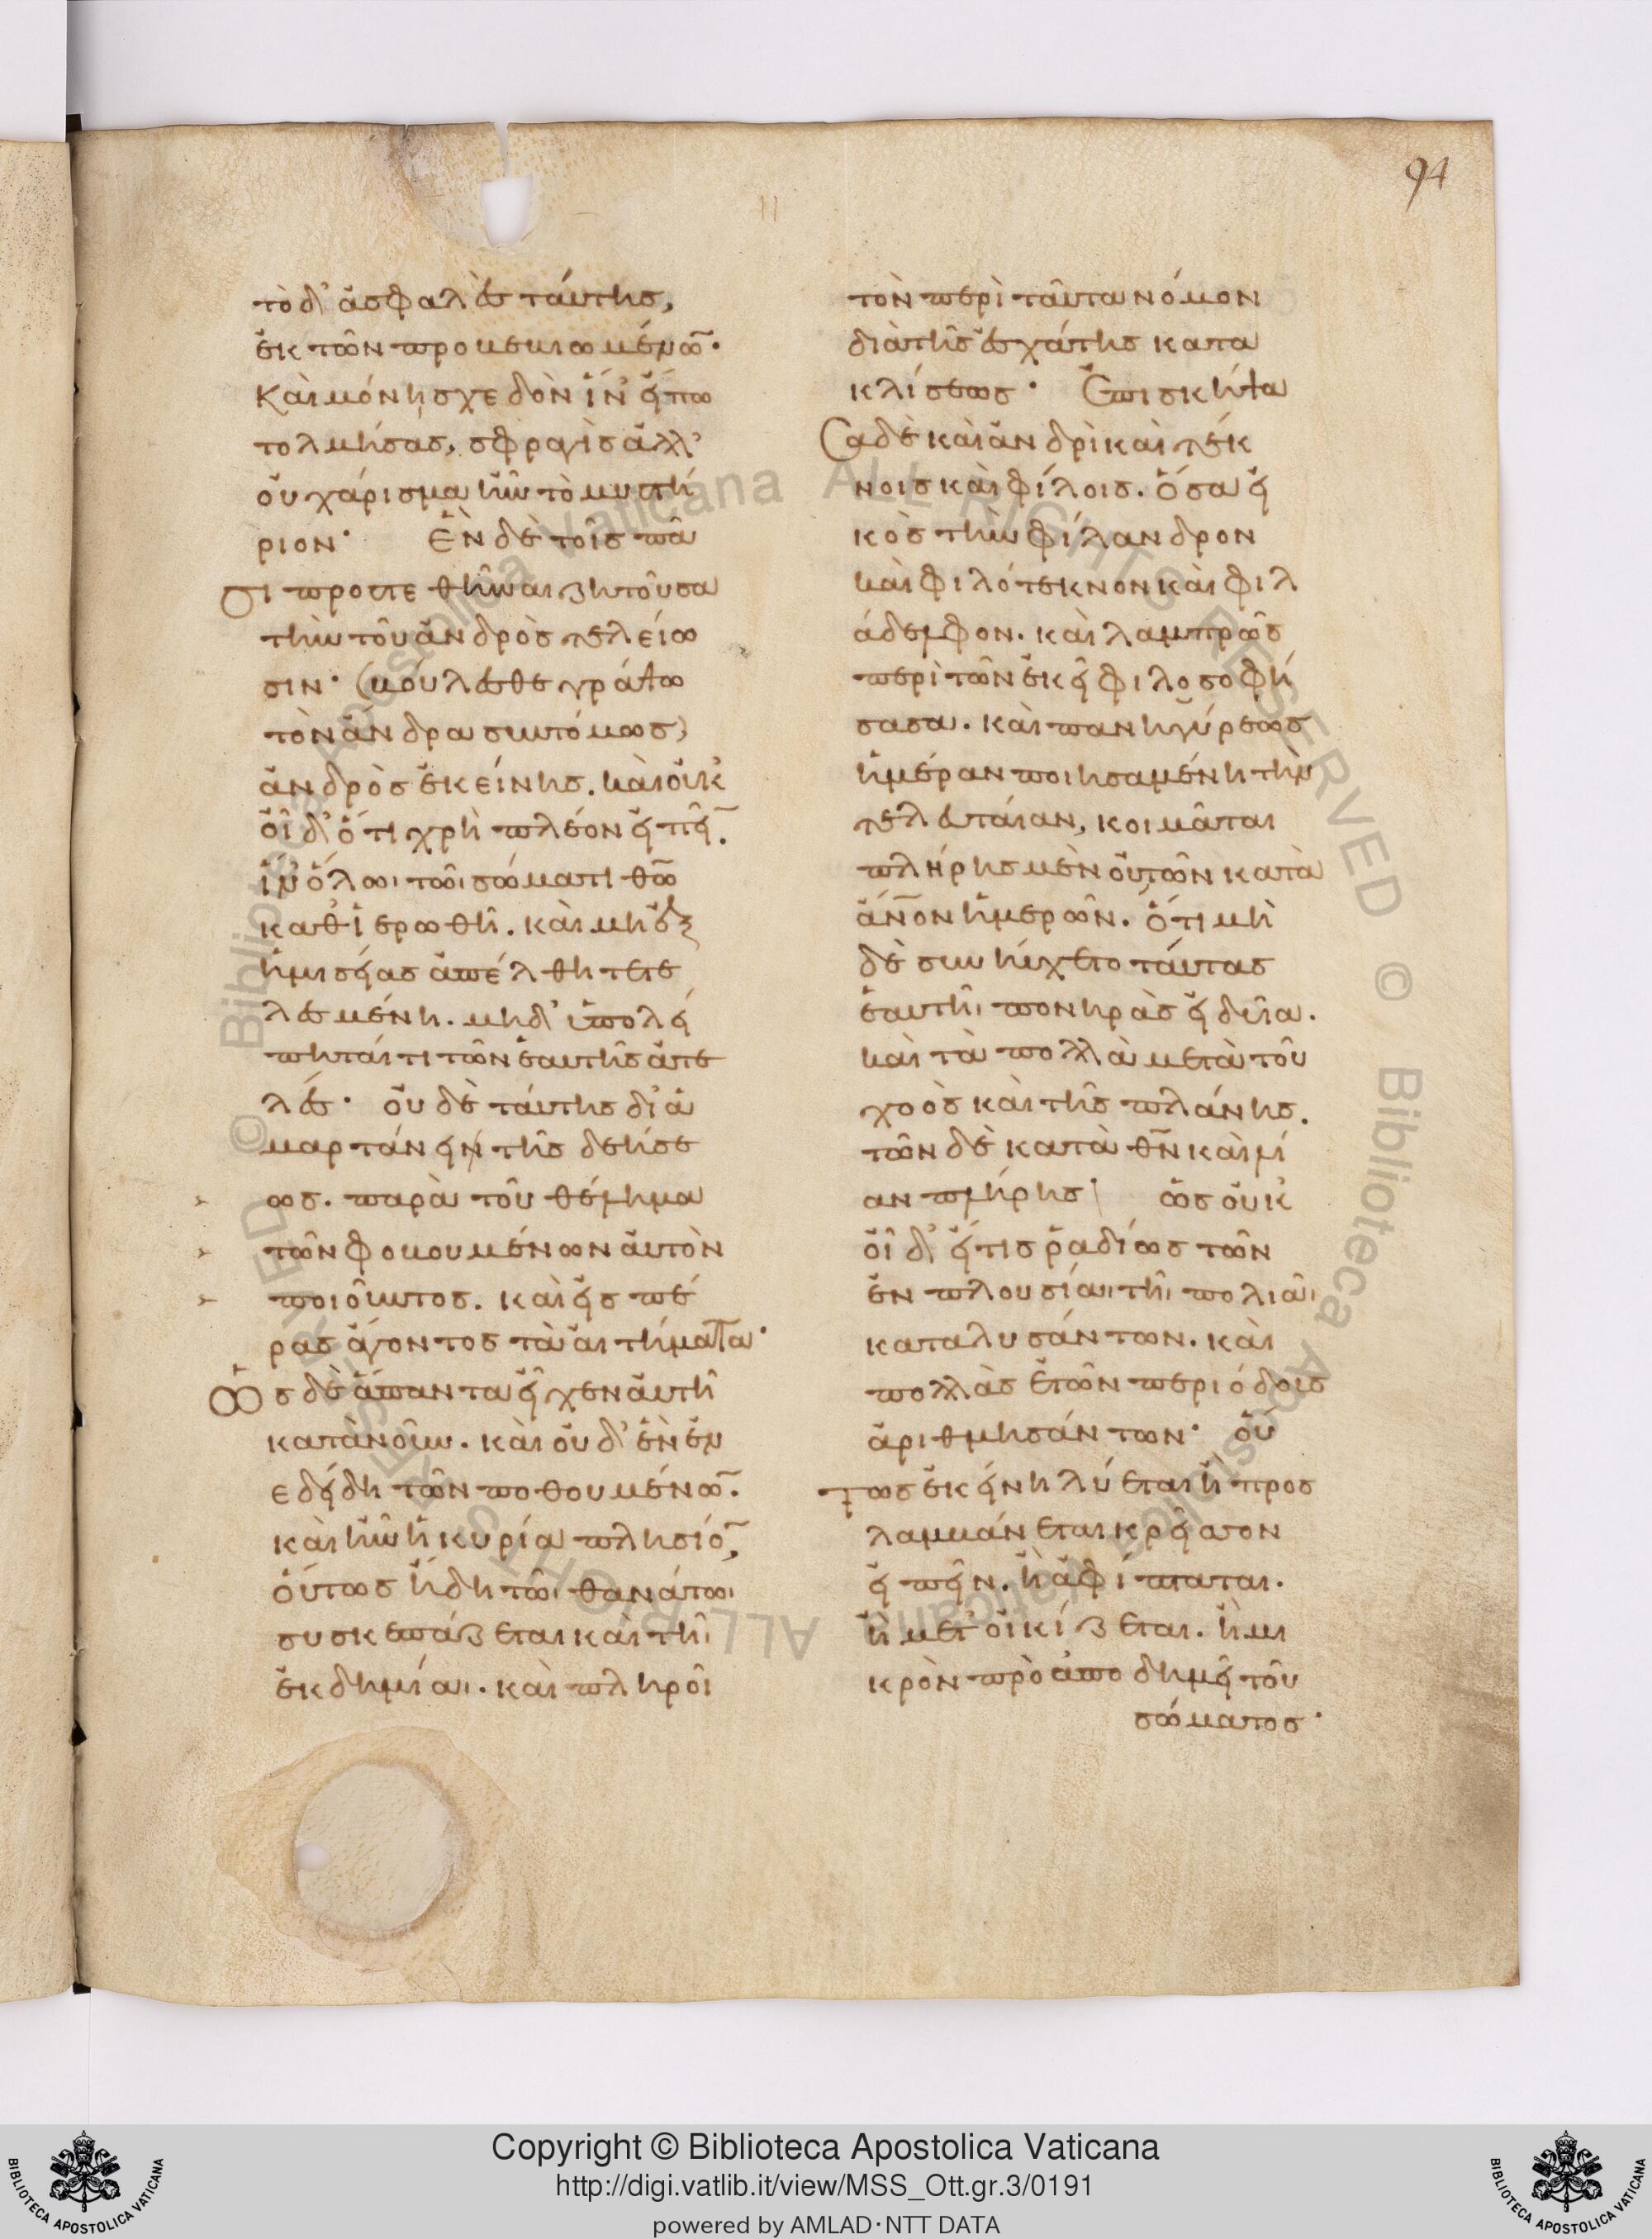 94
τὸ δ' ἀσφαλὲς ταύτης,
ἐκ τῶν προβεβιωμένω̅·
Καὶ μόνη σχεδὸν ἵν' εἴπω
τολμήσας, σφραγὶς ἀλλ'
οὐ χάρισμα ἦν τὸ μυστή
ριον· Ἐν δὲ τοῖς πᾶ
σι προστεθῆναι ζητοῦσα
τὴν τοῦ ἀνδρὸς τελείω
σιν· (βούλεσθε γράψω
τὸν ἄνδρα συντόμως)
ἀνδρὸς ἐκείνης. καὶ οὐκ
οἶδ' ὅτι χρὴ πλέον εἰπεῖ̅.
ἵν' ὅλωι τῶι σώματι θ̅ω̅
καθιερωθῆ. καὶ μὴ ἐξ
ἡμισείας ἀπέλθη τετε
λεσμένη. μηδ' ὑπολεί
πηταί τι τῶν ἑαυτῆς ἀτε
λές· οὐδὲ ταύτης δια
μαρτάνει τῆς δεήσε
ως. παρὰ τοῦ θέλημα
τῶν φοβουμένων αὐτὸν
ποιοῦντος. καὶ εἰς πέ
ρας ἄγοντος τὰ αἰτήματα·
Ὡς δὲ ἅπαντα εἶχεν αὐτῆ
κατὰ νοῦν. καὶ οὐδ' ἓν ἐν
εδείδη τῶν ποθουμένω̅.
καὶ ἦν ἡ κυρία πλησίο̅,
οὕτως ἤδη τῶι θανάτωι
συσκευάζεται καὶ τῆι
ἐκδημίαι. καὶ πληροῖ
τὸν περὶ ταῦτα νόμον
διὰ τῆς ἐσχάτης κατα
κλίσεως· Ἐπισκήψα
σα δὲ καὶ ἀνδρὶ καὶ τέκ
νοις καὶ φίλοις. ὅσα εἰ
κὸς τὴν φίλανδρον
καὶ φιλότεκνον καὶ φιλ
άδελφον. καὶ λαμπρῶς
περὶ τῶν ἐκεῖ φιλοσοφή
σασα. καὶ πανηγύρεως
ἡμέραν ποιησαμένη τὴν
τελευταίαν, κοιμᾶται
πλήρης μὲν οὐ τῶν κατὰ
ἄν̅ο̅ν ἡμερῶν. ὅτι μὴ
δὲ συνηύχετο ταύτας
ἑαυτῆι πονηρὰς εἰδυῖα.
καὶ τὰ πολλὰ μετὰ τοῦ
χοὸς καὶ τῆς πλάνης.
τῶν δὲ κατὰ θ̅ν̅ καὶ λί
αν πλήρης· ὡς οὐκ
οἶδ' εἴ τις ῥαδίως τῶν
ἐν πλουσίαι τῆι πολιᾶι
καταλυσάντων. καὶ
πολλὰς ἐτῶν περιόδοις
ἀριθμησάντων· οὕ
τως ἐκείνη λύεται ἢ προσ
λαμβάνεται κρεῖττον
εἰπεῖν. ἢ ἀφίπταται.
ἢ μετοικίζεται. ἢ μι
κρὸν προαποδημεῖ τοῦ
σώματος·
© Biblioteca Apostolica Vaticana ALL RIGHTS RESERVED © Biblioteca Apostolica Vaticana ALL RIGHTS RESERVED
Copyright © Biblioteca Apostolica Vaticana
http://digi.vatlib.it/view/MSS_Ott.gr.3/0191
powered by AMLAD·NTT DATA
BIBLIOTECA APOSTOLICA VATICANA
BIBLIOTECA APOSTOLICA VATICANA